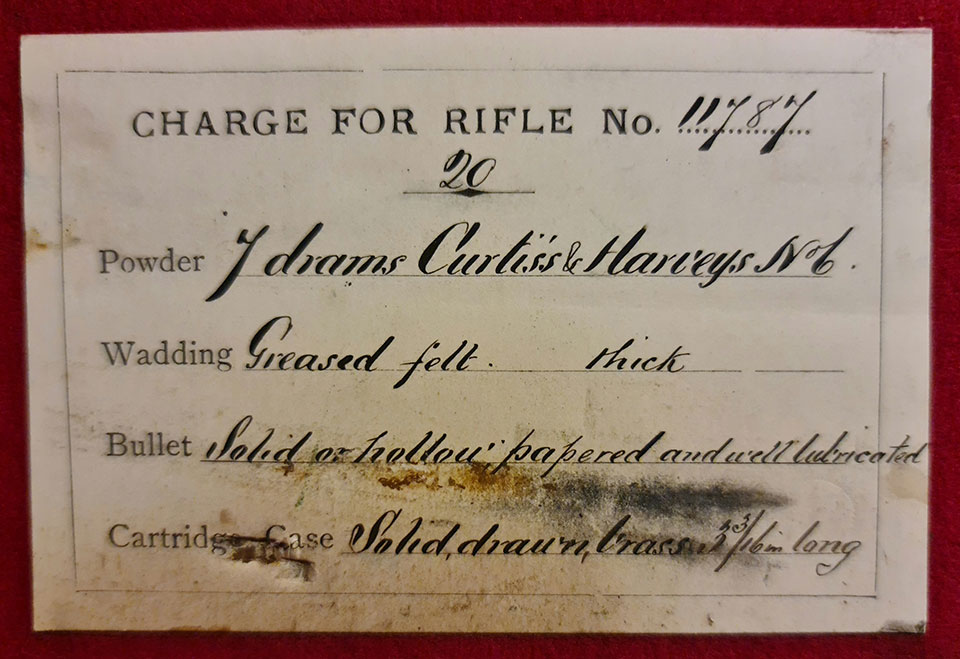 CHARGE FOR RIFLE No. 11787
20
Powder 7 drams Curtis's & Harveys No 6.
Wadding Greased felt. thick
Bullet Solid or hollow, papered and well lubricated
Cartridge Case Solid, drawn, brass 3 3/16 in long